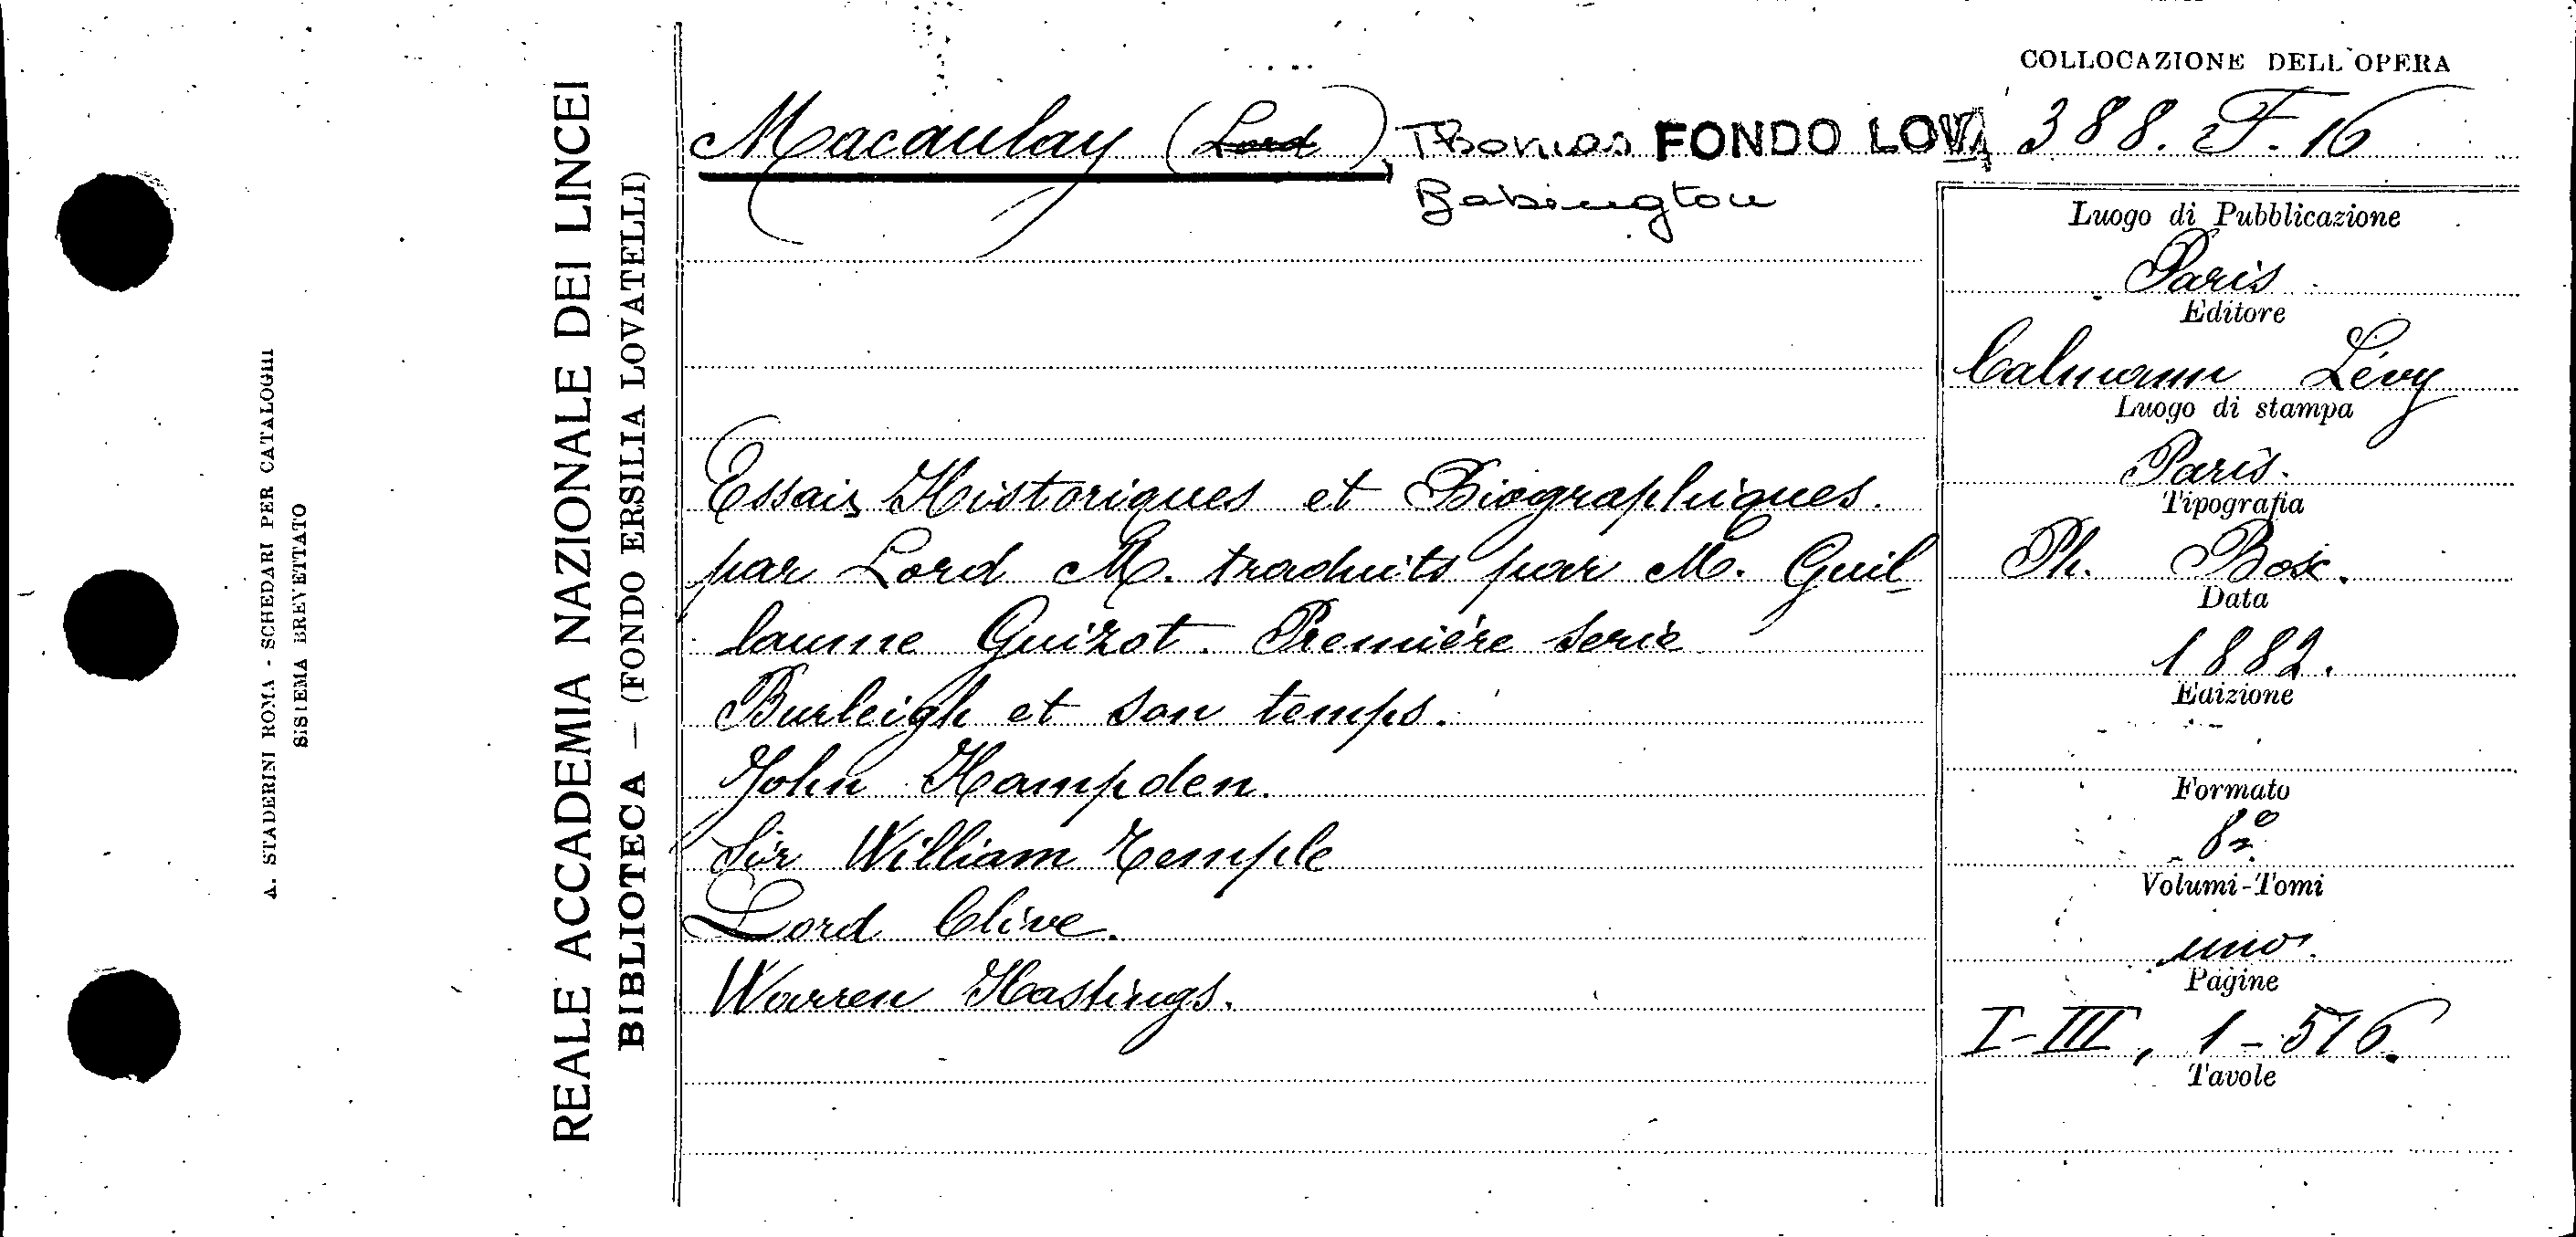 A. STADERINI ROMA - SCHEDARI PER CATALOGHI
SISTEMA BREVETTATO
REALE ACCADEMIA NAZIONALE DEI LINCEI
BIBLIOTECA — (FONDO ERSILIA LOVATELLI)
COLLOCAZIONE DELL'OPERA
Macaulay (Lord), Thomas FONDO LOV. 388. F. 16
Babington
Essais Historiques et Biographiques.
par Lord M. traduits par M. Guil-
laume Guizot. Première serie
Burleigh et son temps.
John Hampden.
Sir William Temple
Lord Clive.
Warren Hastings.
Luogo di Pubblicazione
Paris
Editore
Calmann Lévy
Luogo di stampa
Paris.
Tipografia
Ph. Bosc.
Data
1882.
Edizione
Formato
8º
Volumi-Tomi
uno.
Pagine
I-III, 1-576.
Tavole